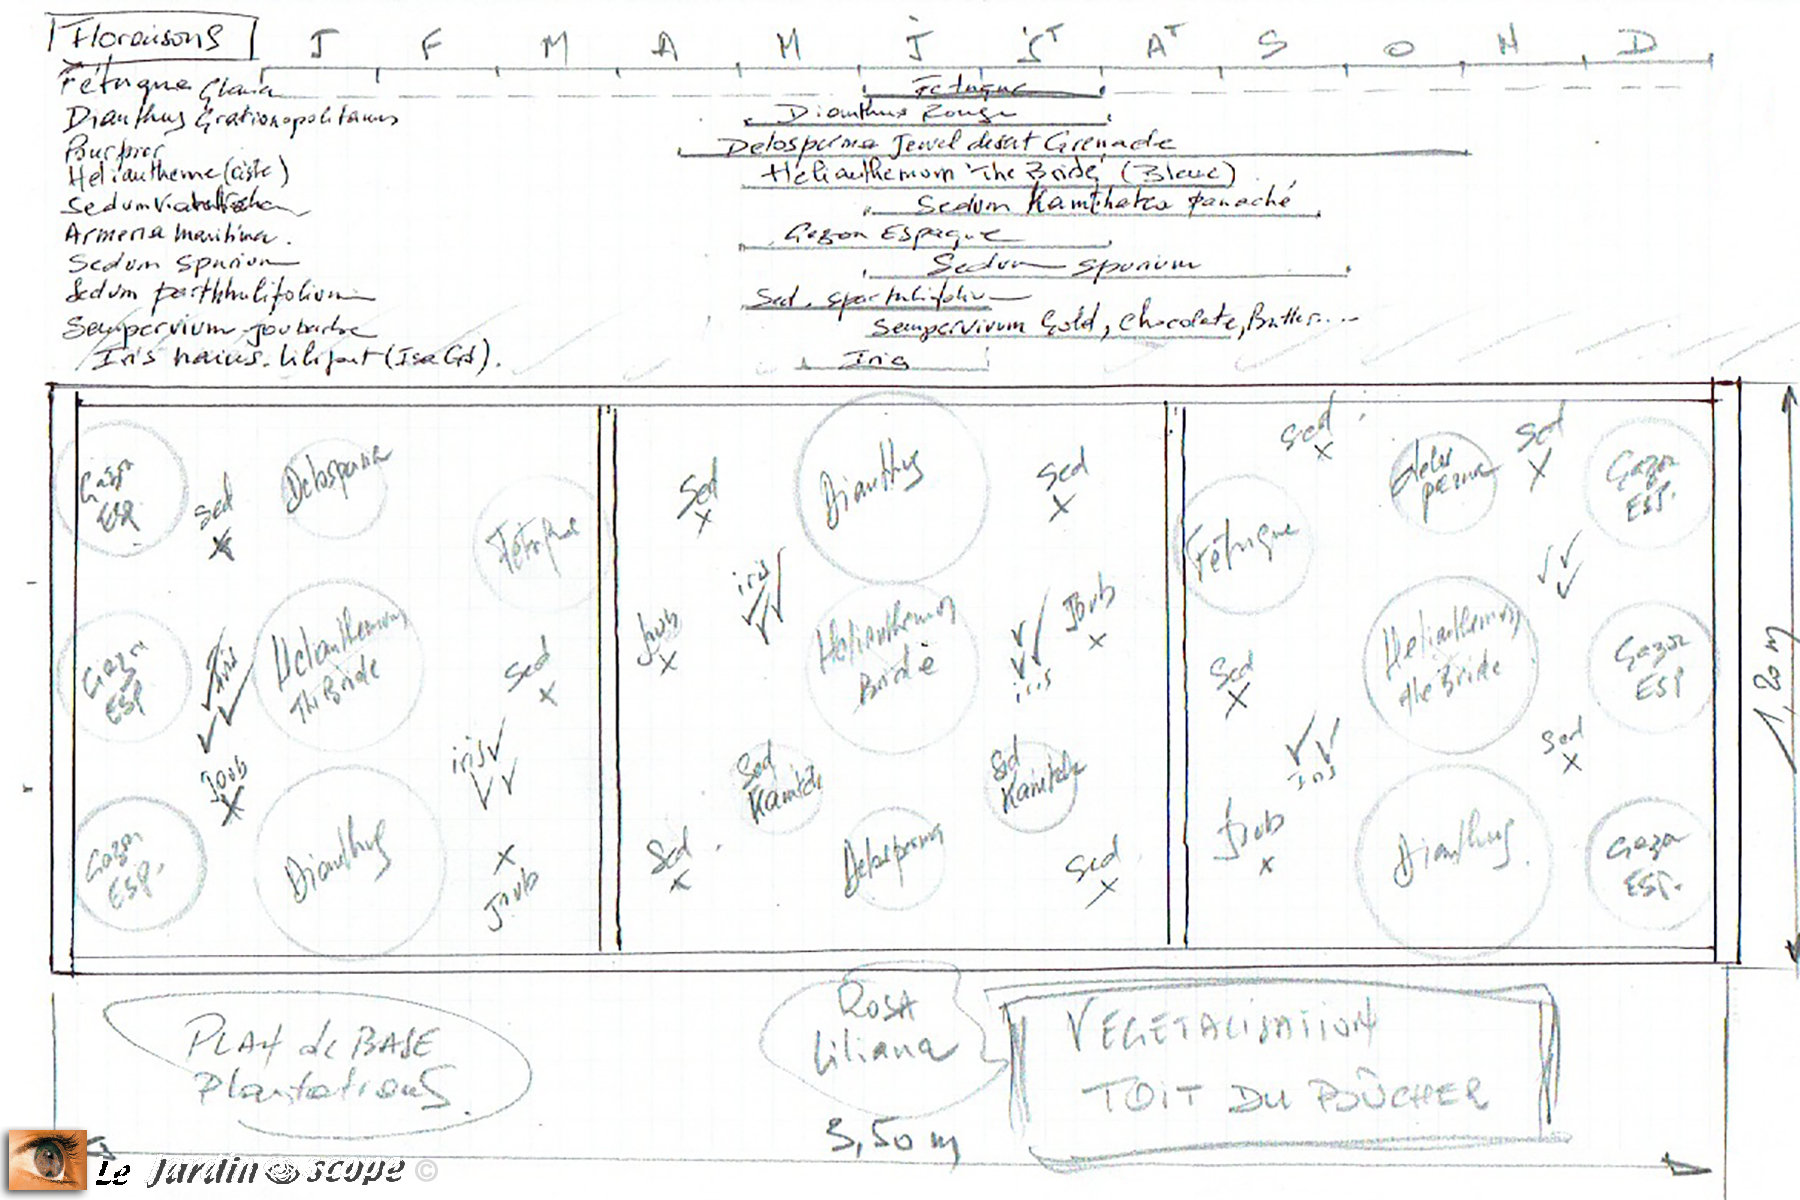 Floraisons J F M A M J Jt At S O N D
Fétuque Glauca Fétuque
Dianthus Gratianopolitanus Dianthus Rouge
Pourpier Delosperma Jewel desert Grenade
Heliantheme (ciste) Helianthemum The Bride (Blanc)
Sedum Kamthatca panaché
Armeria maritima. Gazon Espagne
Sedum spurium Sedum spurium
Sedum
Sempervivum Joubarbe Sempervivum Gold, Chocolate, Butter....
Iris nains. Liliput (Isa Gd). Iris
Gazon ESP.
Sed
Delosperma
Fétuque
Sed
Dianthus
Sed
Sed
Delosperma
Sed
Gazon ESP.
Fétuque
Gazon ESP
Iris
Helianthemum The Bride
Sed
Joub
iris
Helianthemum Bride
iris
Joub
Sed
Helianthemum the Bride
Gazon ESP
Joub
iris
Sed Kamtch
Sed Kamtch
iris
Sed
Gazon ESP.
Dianthus
Joub
Sed
Delosperma
Sed
Joub
Dianthus
Gazon ESP.
1,20 m
PLAN de BASE
Plantations.
ROSA
Liliana
VEGETALISATION
TOIT DU BÛCHER
3,50 m
Le Jardin scope ©